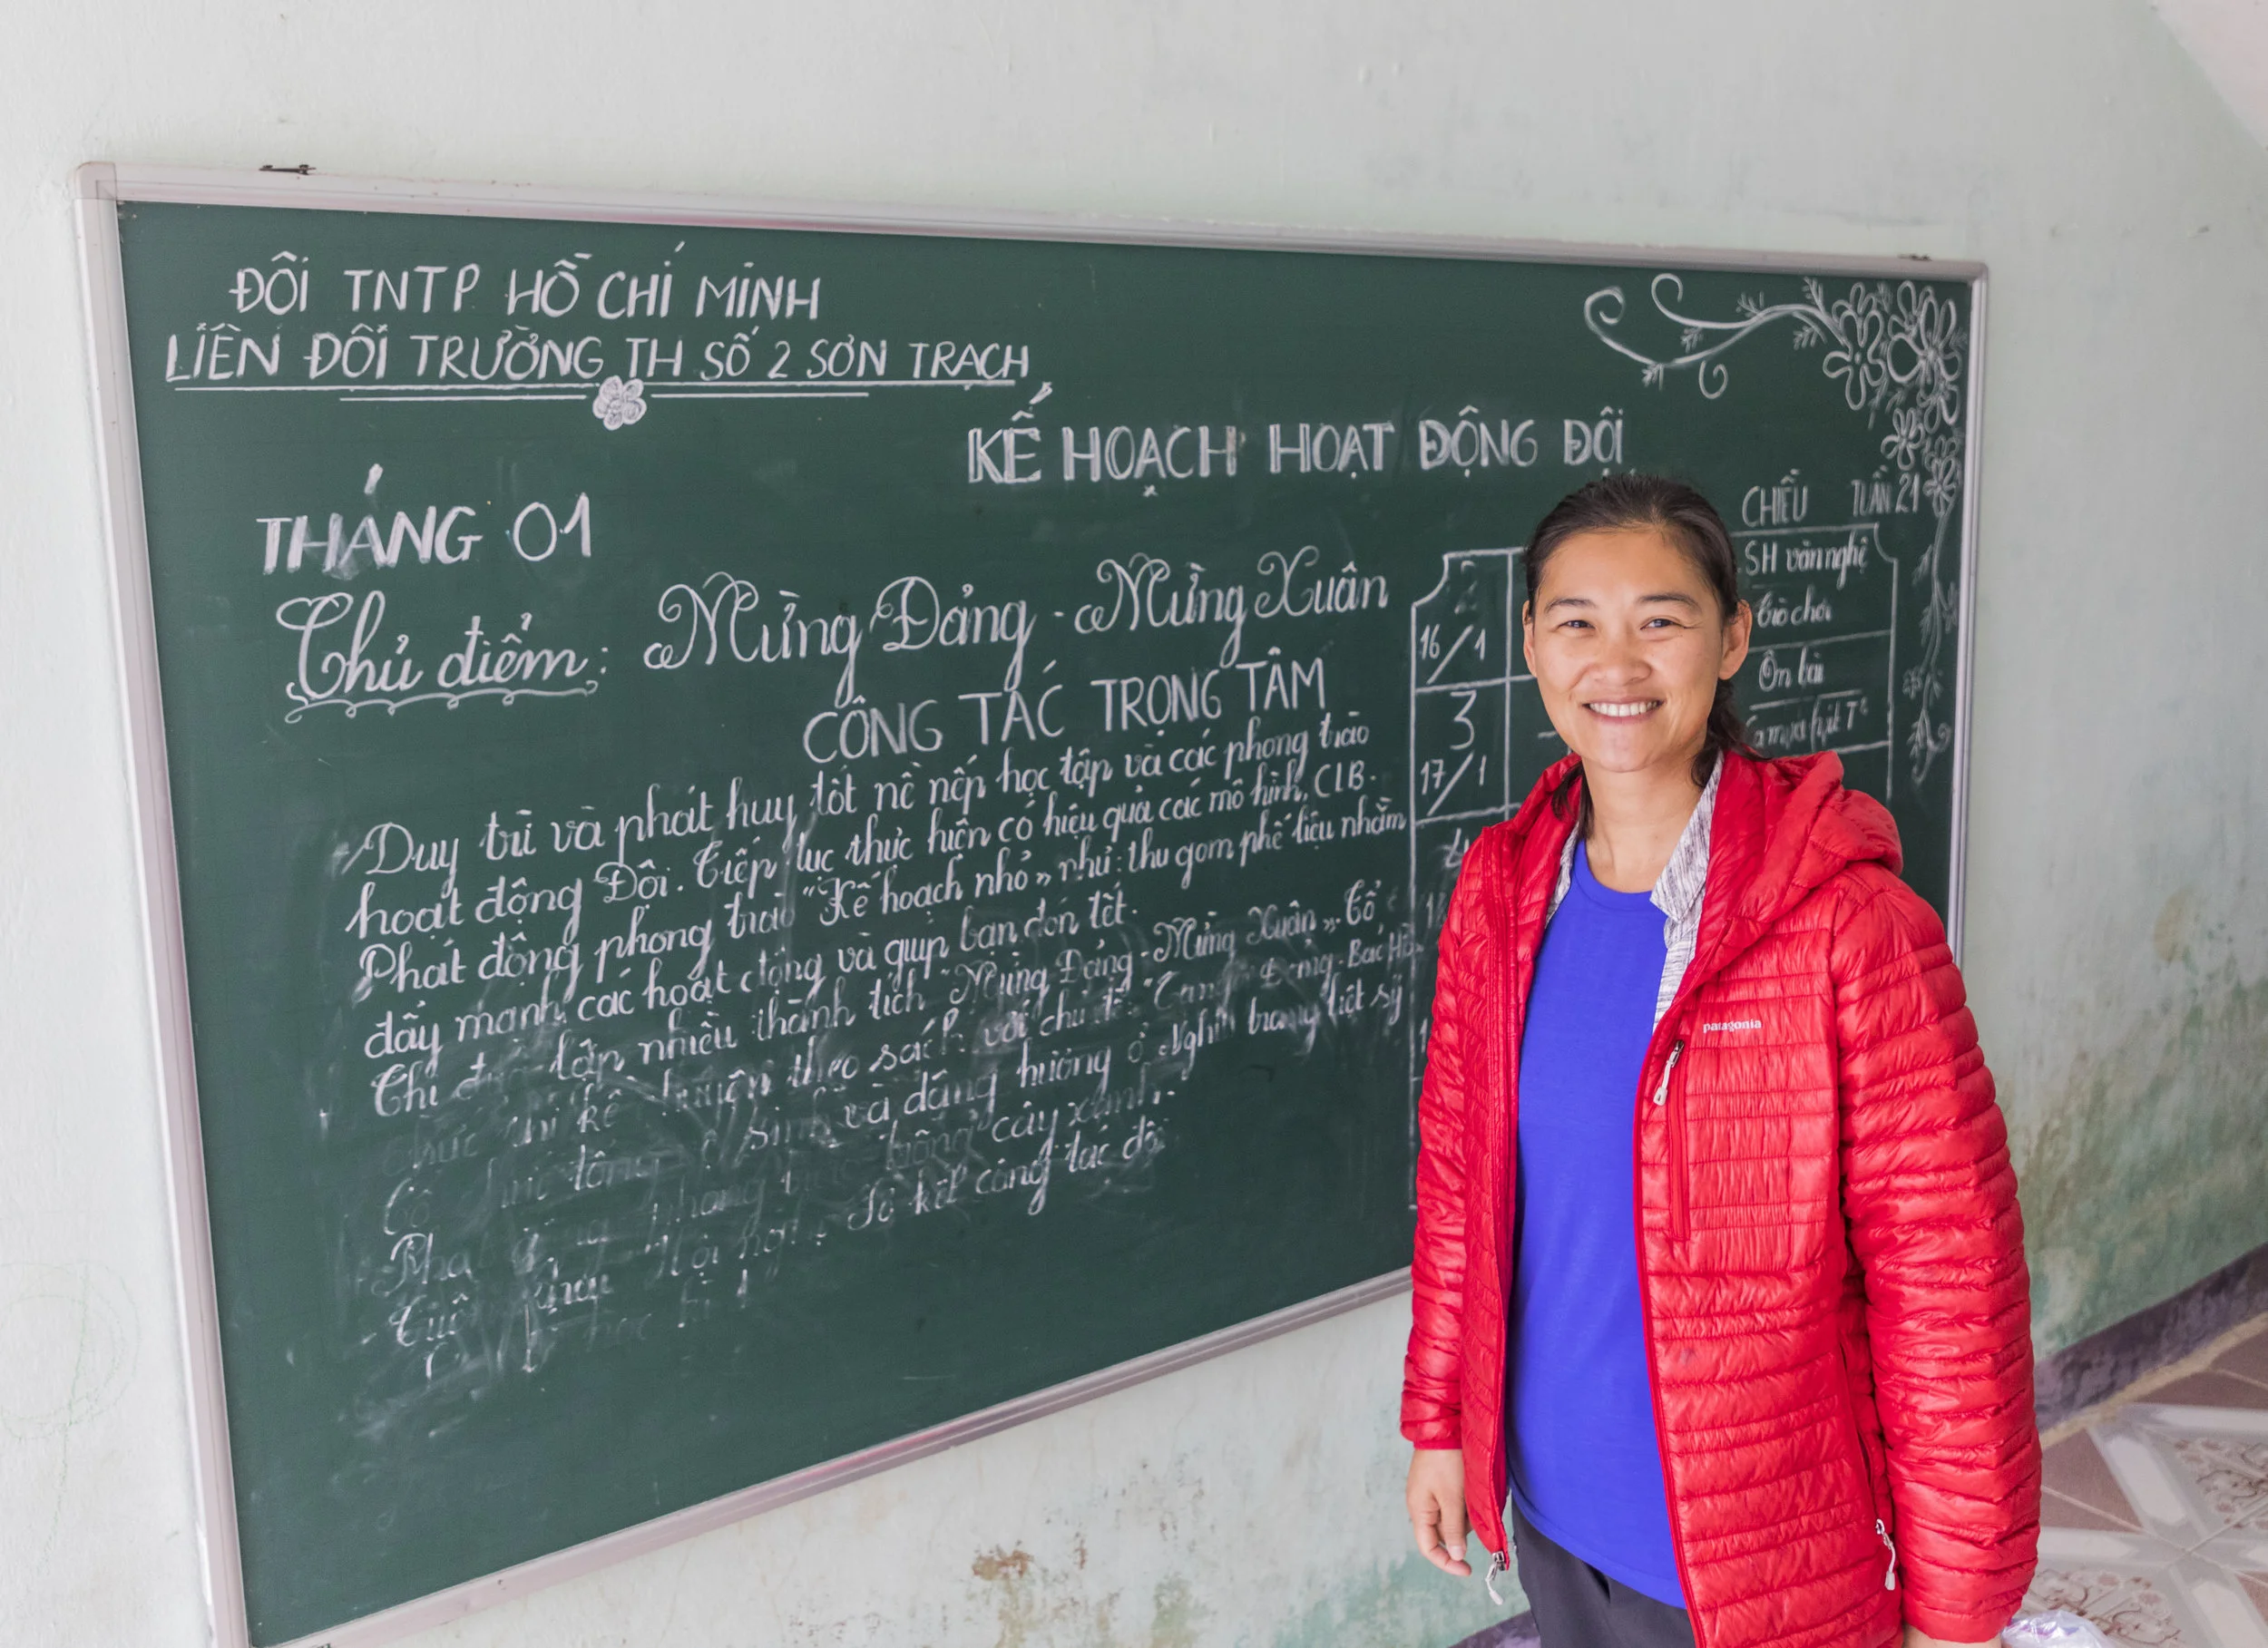 ĐỘI TNTP HỒ CHÍ MINH
LIÊN ĐỘI TRƯỜNG TH SỐ 2 SƠN TRẠCH
KẾ HOẠCH HOẠT ĐỘNG ĐỘI
THÁNG 01
CHIỀU TUẦN 21
Thủ điểm: Mừng Đảng - Mừng Xuân
CÔNG TÁC TRỌNG TÂM
Duy trì và phát huy tốt nề nếp học tập và các phong trào
hoạt động Đội. Tiếp tục thực hiện có hiệu quả các mô hình, CLB.
Phát động phong trào "Kế hoạch nhỏ" như: thu gom phế liệu nhằm
đẩy mạnh các hoạt động và giúp bạn đón tết.
Thi lập nhiều thành tích "Mừng Đảng - Mừng Xuân". Tổ
chức thi kể chuyện theo sách với chủ đề: Đảng - Bác Hồ
và dâng hương ở Nghĩa trang liệt sỹ
phong trào trồng cây xanh.
Hội nghị Sơ kết công tác
2
16/1
3
17/1
SH văn nghệ
Trò chơi
Ôn bài
patagonia